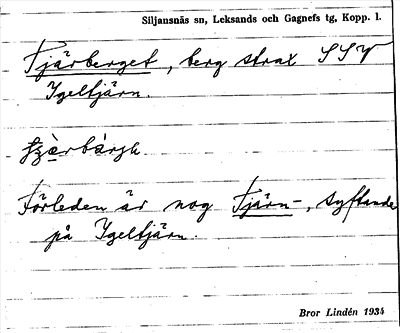 Siljansnäs sn, Leksands och Gagnefs tg, Kopp. l.
Tjärberget, berg strax SSV
Igeltjärn.
Förleden är nog Tjärn-, syftande
på Igeltjärn.
Bror Lindén 1934